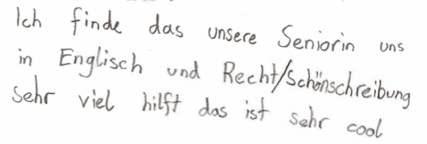 Ich finde das unsere Seniorin uns
in Englisch und Recht/Schönschreibung
sehr viel hilft das ist sehr cool